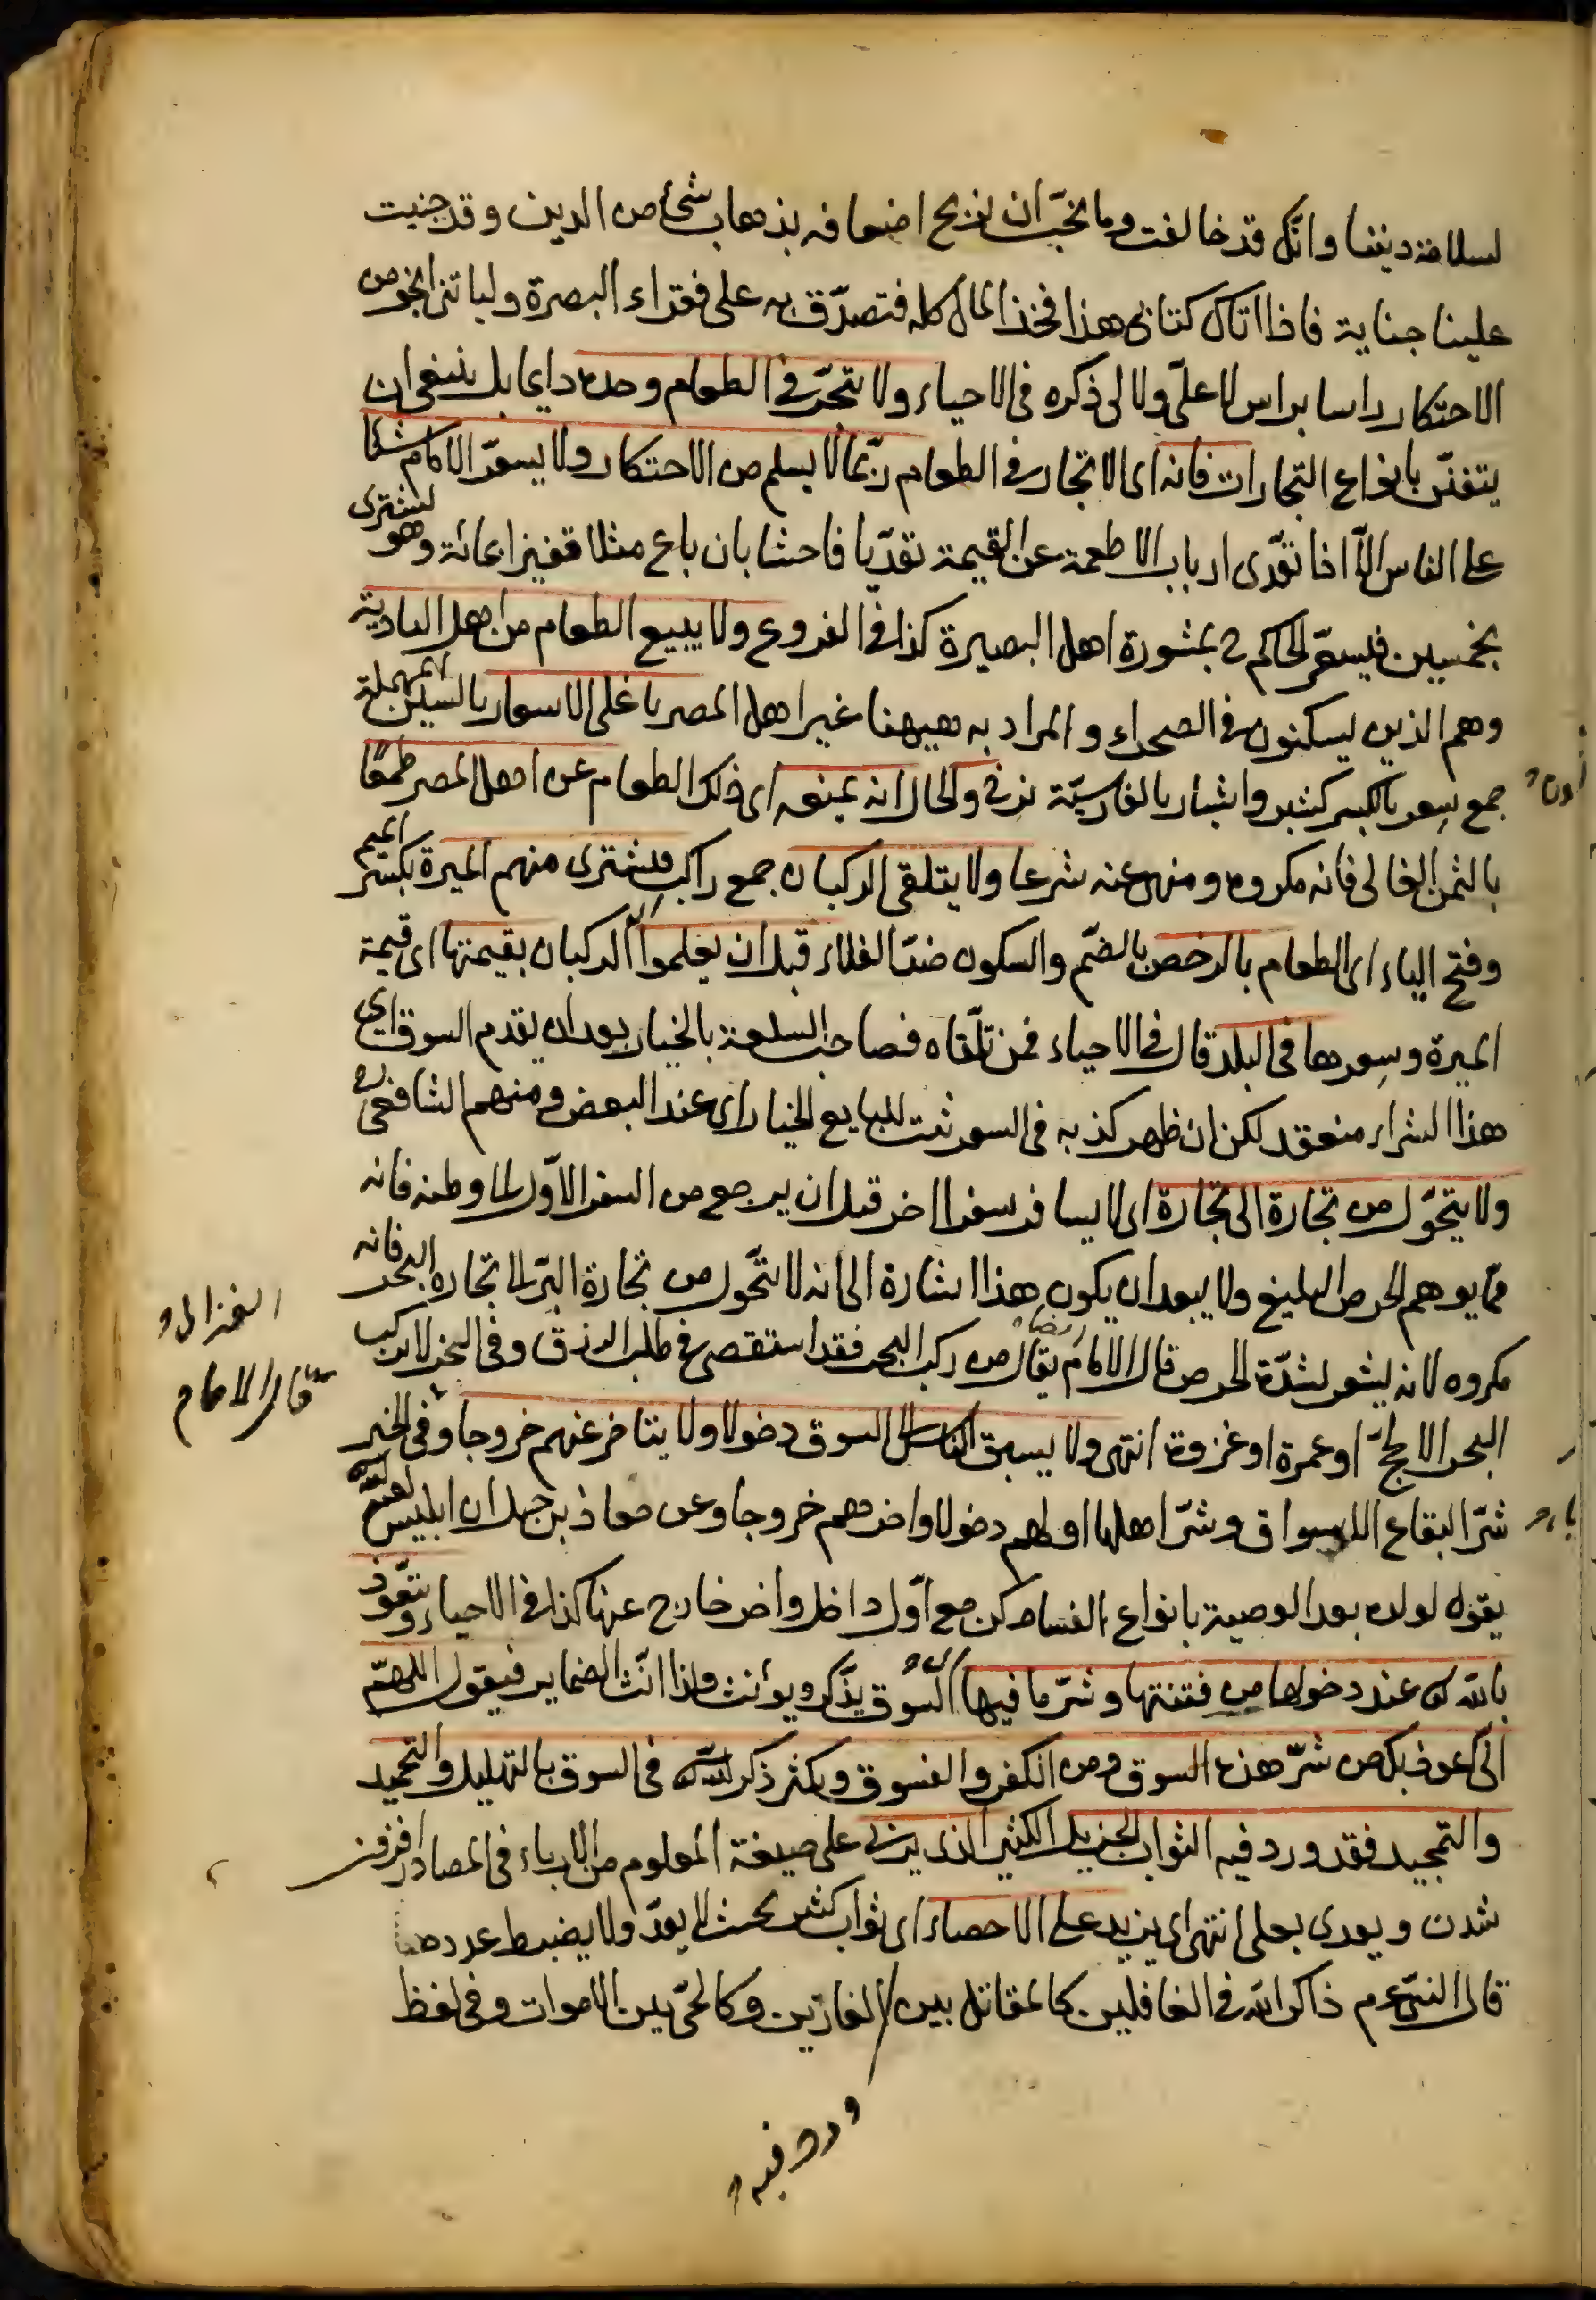 لسلامة ديننا وانك قد خالفت وما نحبّ ان نربح اضعافه بذهاب شئ من الدين وقد جنيت
علينا جناية فاذا اتاك كتابى هذا فخذ المال كله فتصدّق به على فقراء البصرة وليتنى انجو من
الاحتكار راسا براس لا علىّ ولا لى ذكره فى الاحياء ولا يتجّر فى الطعام وحده داى بل ينبغى ان
يتفنّن بانواع التجارات فانه اى الاتجار فى الطعام ربّما لا يسلم من الاحتكار ولا يسعّر الامام شئا
على الناس الّا اذا تعّدى ارباب الاطعمة عن القيمة تعدّيا فاحشا بان باع مثلا قفيزا بمائة وهو لیشترى
بخمسين فيسعّر الحاكم ح بمشورة اهل البصيرة كذا فى الفروع ولا يبيع الطعام من اهل البادية
وهم الذين يسكنون فى الصحراء والمراد به ههنا غير اهل المصر باغلى الاسعار بالسين المهملة
جمع سِعر بالكسر كشبر واشبار بالفارسيّة نرخ والحال انه يمنعه اى ذلك الطعام عن اهل المصر طمعًا
بالثمن الغالى فانه مكروه ومنهى عنه شرعا ولا يتلقى الركبان جمع راكب فيشترى منهم الميرة بكسر الميم
وفتح الياء اى الطعام بالرخص بالضّم والسكون ضدّ الغلاء قبل ان يعلموا اى الركبان بقيمتها اى قيمة
الميرة وسِعرها فى البلد قال فى الاحياء فمن تلّقاه فصاحب السلعة بالخيار بعد ان يقدم السوق اى
هذا الشراء منعقد لكن ان ظهر كذبه فى السعر ثبت للبايع الخيار اى عند البعض ومنهم الشافعى ره
ولا يتحوّل من تجارة الى تجارة اى لا يسافر سفرا اخر قبل ان يرجع من السفر الاوّل الى وطنه فانه
ممّا يوهم الحرص البليغ ولا يبعد ان يكون هذا اشارة الى انه لا يتحّول من تجارة البّر الى تجارة البحر فانه
مكروه لانه يشعر لشدّة الحرص قال الامام ايضا يقال من ركب البحر فقد استقصى فى طلب الرزق وفى الخبر لا يركب
البحر الا لحجّ او عمرة او غزوة انتهى ولا يسبق الناس الى السوق دخولا ولا يتاخر عنهم خروجا وفى الخبر
شرّ البقاع الاسواق وشرّ اهلها اولهم دخولا واخرهم خروجا وعن معاذ بن جبل ان ابليس لعنه الله
يقول لولده بعد الوصية بانواع الفساد كن مع اوّل داخل واخر خارج عنها كذا فى الاحياء ويتعّوذ
بالله عند دخولها من فتنتها وشرّ ما فيها السُّوق يذّكر ويؤنث ولذا انّث الضماير فيقول اللهمّ
انّى اعوذ بك من شرّ هذه السوق ومن الكفر والفسوق ويكثر ذكر الله فى السوق بالتهليل والتحميد
والتمجيد فقد ورد فيه الثواب الجزيل الكثير الذى يربى على صيغة المعلوم من الارباء فى المصادر افزون
شدن ويعدى بعلى انتهى اى يزيد على الاحصاء اى ثواب كثير بحيث لا يعدّ ولا يضبط عددها
قال النبىّ عم ذاكر الله فى الغافلين كالمقاتل بين الفارّين وكالحىّ بين الاموات وفى لفظ
الغزالى
قال الامام
ورد فيه